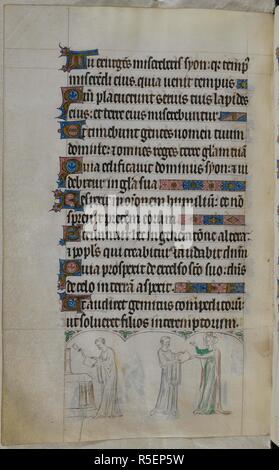 Tu exurges misereberis syon: qr temp
miserēdi eius. quia uenit tempus
Qm̄ placuerunt seruis tuis lapides
eius: et terre eius miserebuntur.
Et timebunt gentes nomen tuum
domine: ⁊ omnes reges terre gl̄am tuā
Quia edificauit dominus syon: ⁊ ui
debitur in gl̄a sua
Respexit
et nō
spreuit precem
Scribantur hec in generac̄one altera:
⁊ popl̄s qui creabitur laudabit dn̄m
Quia prospexit de excelso sc̄o suo: dn̄s
de celo in terram aspexit.
Ut audiret gemitus compeditorū:
ut solueret filios interemptorum.
alamy
alamy
Image ID: R5EP5W
www.alamy.com